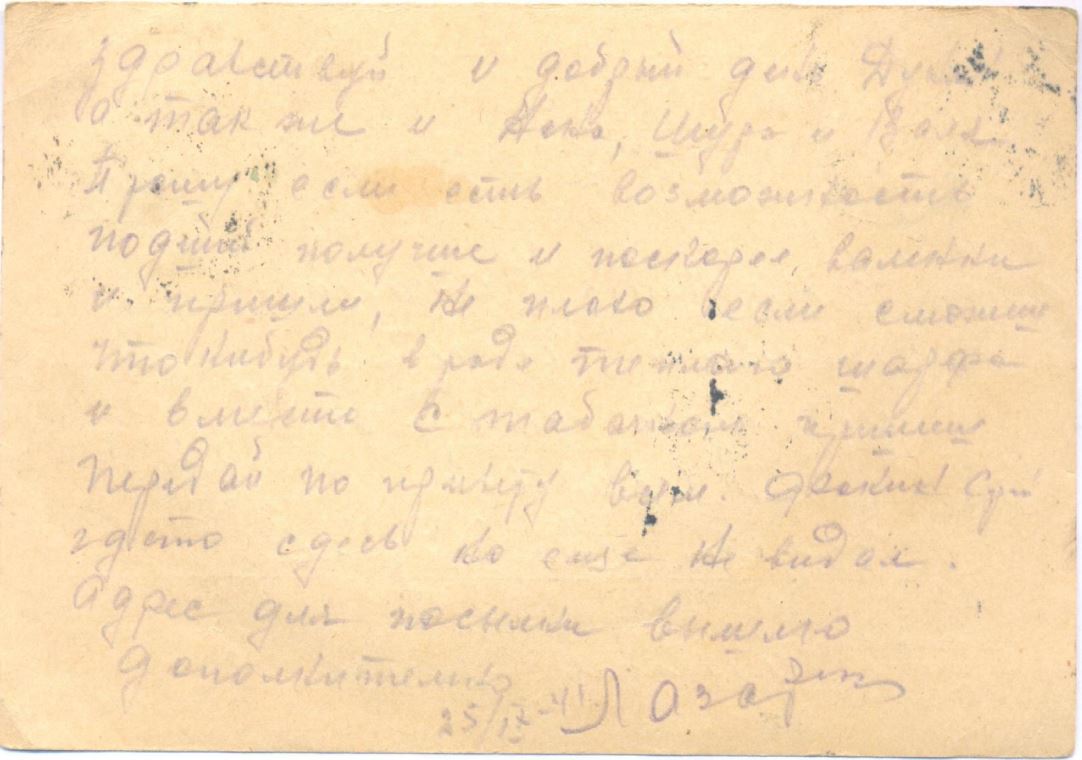 Здравствуй и добрый день Дуня!
а так же и Нена, Шура и Валя
Прошу если есть возможность
подшей получше и поскорее, валенки
и пришли, не плохо если сможеш
что нибудь в роде теплого шарфа
и вместе с табачком пришли
передай по привету всем.
гдето сдесь но еще не видал.
Адрес для посылки вышлю
дополнительно
25/IX-41 Лазаренко